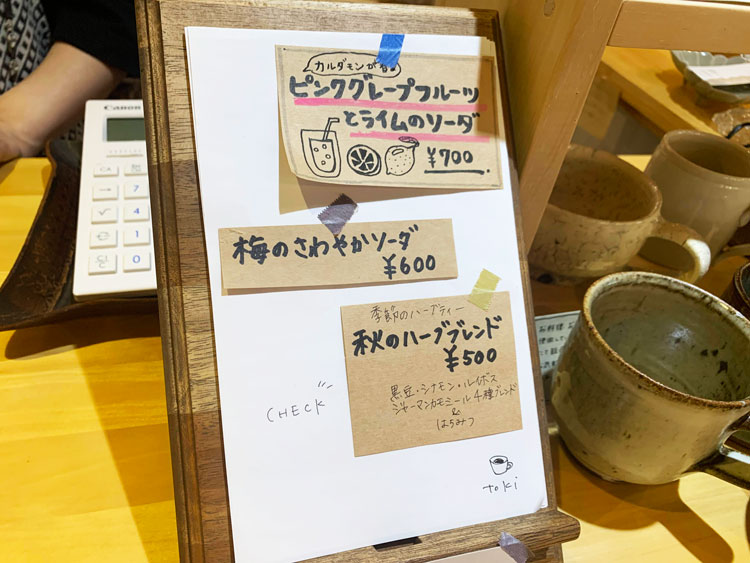 カルダモンがね♪
ピンクグレープフルーツ
とライムのソーダ
¥700
梅のさわやかソーダ
¥600
季節のハーブティー
秋のハーブブレンド
¥500
黒豆・シナモン・ルイボス
ジャーマンカモミール 4種ブレンド
&
はちみつ
CHECK
toki
CANON
CA
7
4
1
0